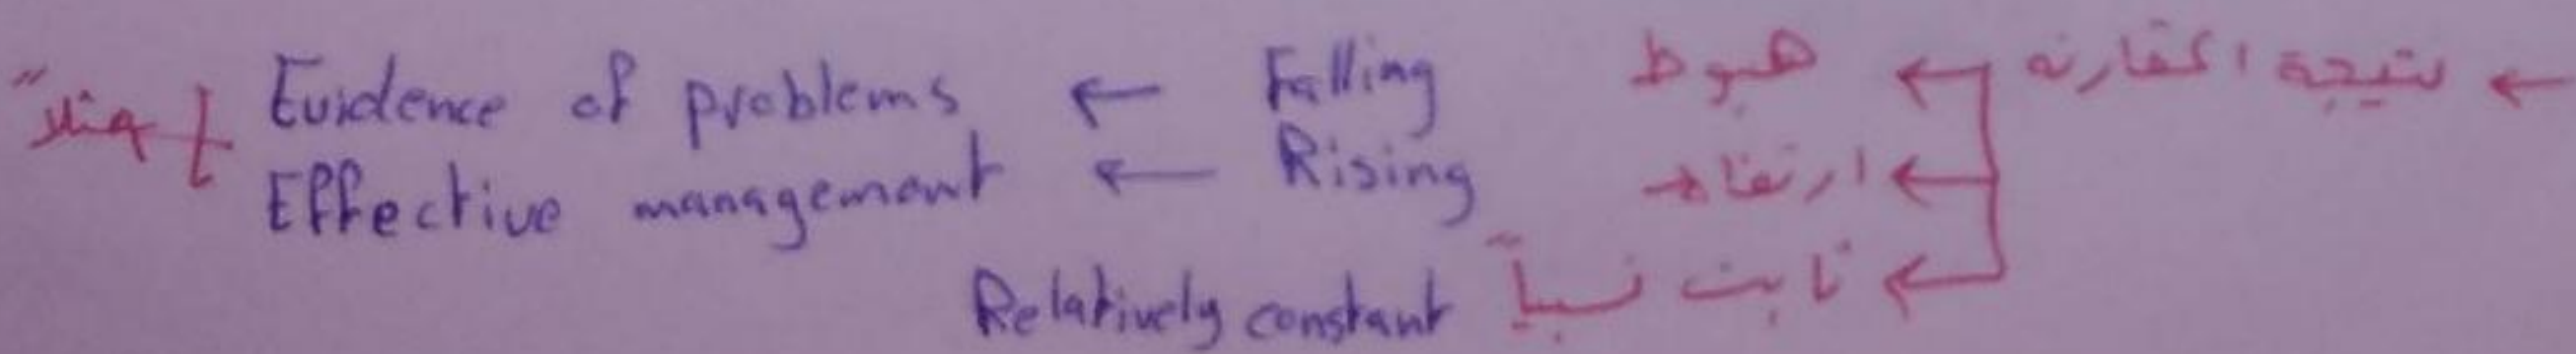 ← نتيجة المقارنه ← هبوط Falling ← Evidence of problems
← ارتفاع Rising ← Effective management } مثلاً
← ثابت نسبياً Relatively constant